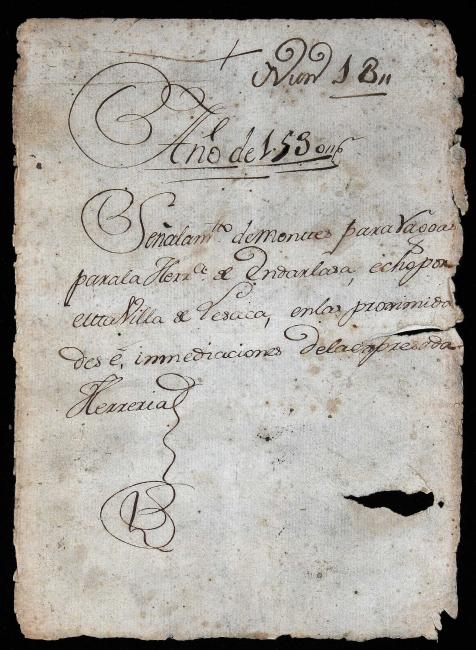 Num 18,,
Año de 1530
Señalamto de montes para
para la Herra de Endarlasa, echo por
esta Villa de Lesaca, en las proximida
des é, immediaciones de la expresada
Herreria